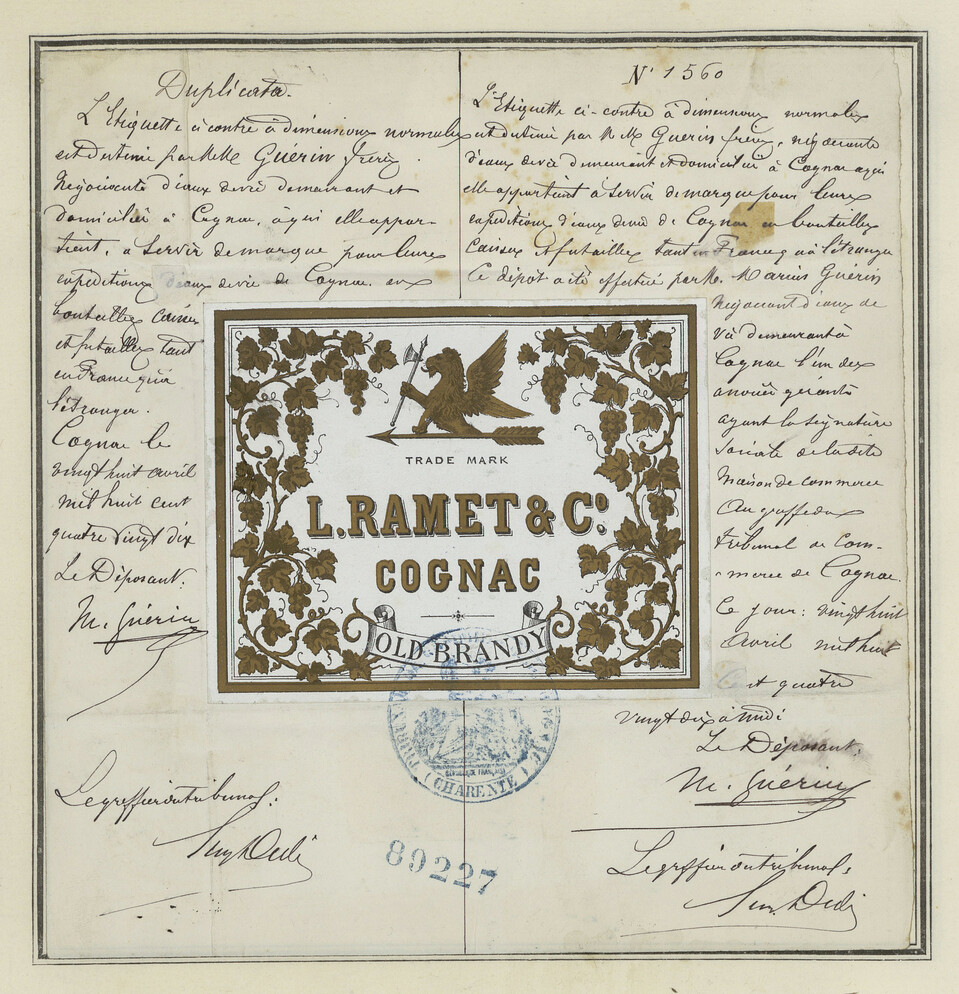 Duplicata.
L'Etiquette ci contre à dimensions normales
est destinée par MM Guérin frères
Négociants d'eaux de vie demeurant et
domiciliés à Cognac, à qui elle appar-
tient, à servir de marque pour leurs
expéditions d'eaux de vie de Cognac en
bouteilles caisses
et futailles tant
en France qu'à
l'étranger.
Cognac le
vingt huit avril
mil huit cent
quatre vingt dix
Le Déposant.
M. Guérin
Le greffier du tribunal:
N° 1560
L'Etiquette ci-contre à dimensions normales
est destinée par MM Guérin frères, négociants
d'eaux de vie demeurant et domiciliés à Cognac à qui
elle appartient à servir de marque pour leurs
expéditions d'eaux de vie de Cognac en bouteilles
caisses et futailles tant en France qu'à l'étranger
Ce dépôt a été effectué par M. Marius Guérin
Négociant d'eaux de
vie demeurant à
Cognac l'un des
associés gérants
ayant la signature
sociale de la dite
Maison de commerce
Au greffe du
tribunal de Com-
merce de Cognac.
Ce jour: vingt huit
avril mil huit
cent quatre
vingt dix à midi
Le Déposant.
M. Guérin
Le greffier du tribunal:
TRADE MARK
L. RAMET & Co.
COGNAC
OLD BRANDY
RÉPUBLIQUE FRANÇAISE
(CHARENTE)
89227